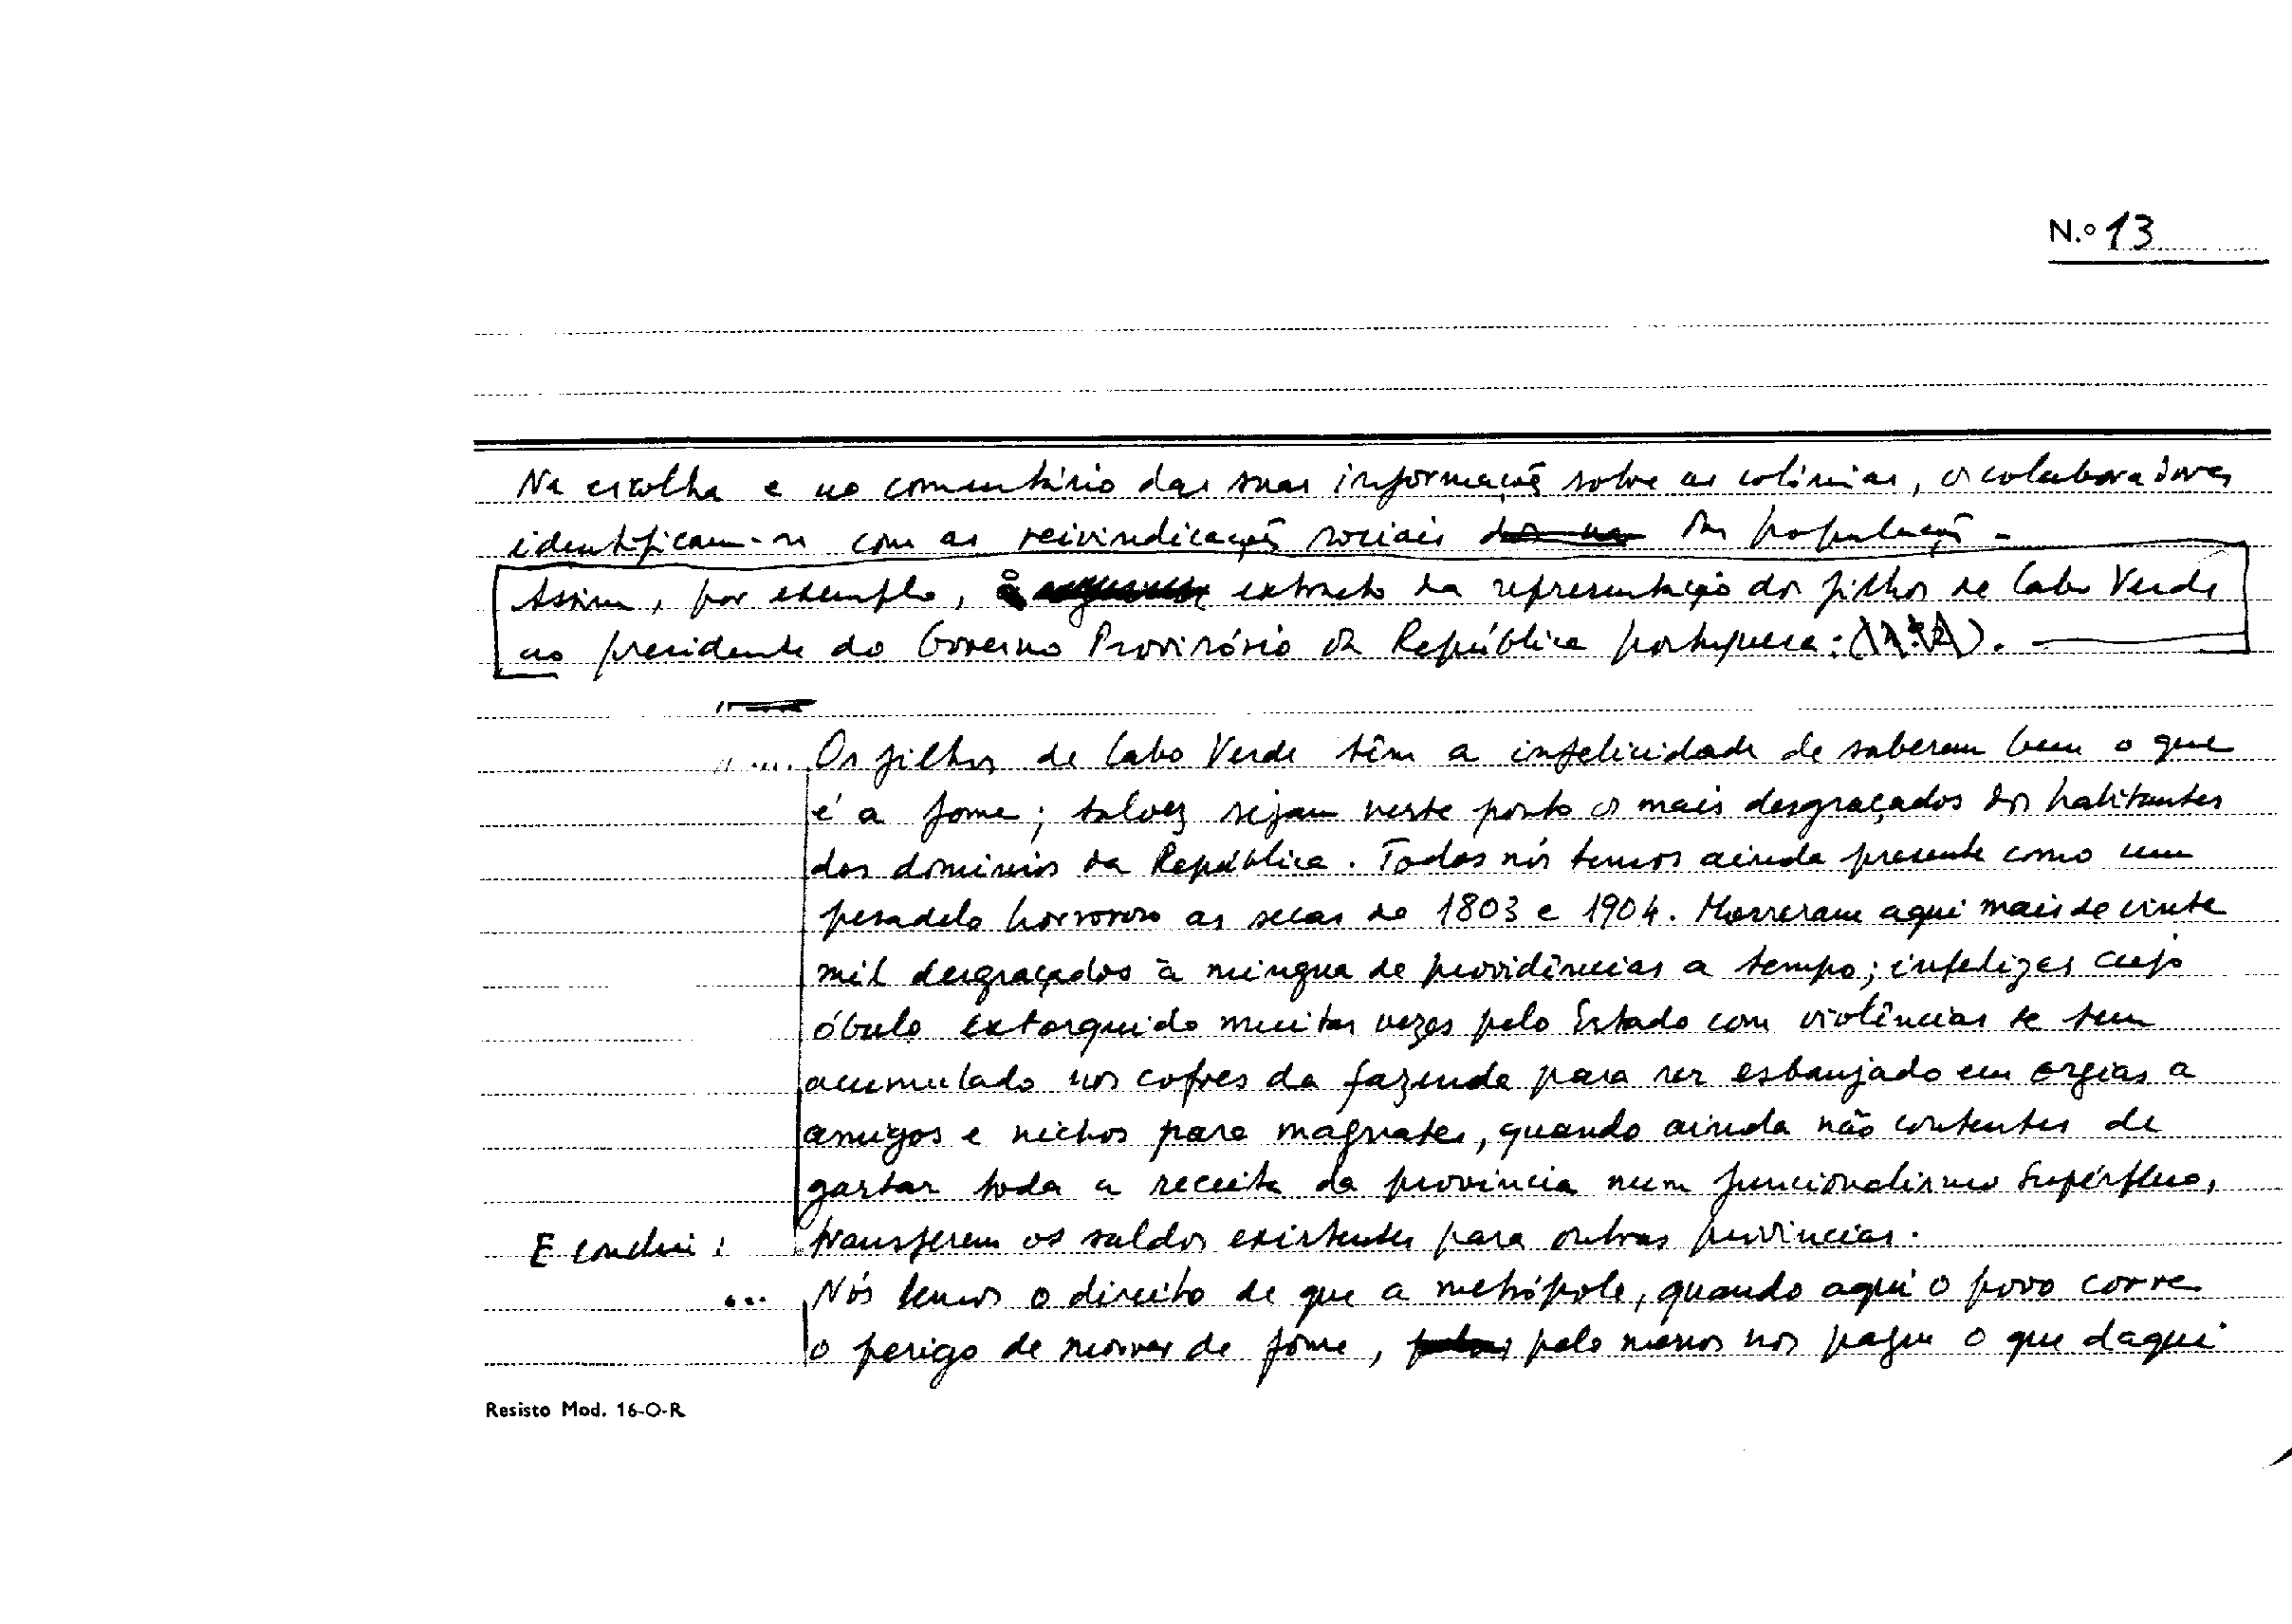 N.º 13
Na escolha e no comentário das suas informações sobre as colónias, os colaboradores
identificam-se com as reivindicações sociais das populações -
Assim, por exemplo, o extracto da representação dos filhos de Cabo Verde
ao presidente do Governo Provisório da República portuguesa:
".... Os filhos de Cabo Verde têm a infelicidade de saberem bem o que
é a fome; talvez sejam neste ponto os mais desgraçados dos habitantes
dos domínios da República. Todos nós temos ainda presente como um
pesadelo horroroso as secas de 1803 e 1904. Morreram aqui mais de vinte
mil desgraçados à míngua de providências a tempo; infelizes cujo
óbulo extorquido muitas vezes pelo Estado com violências se tem
acumulado nos cofres da fazenda para ser esbanjado em orgias a
amigos e nichos para magnates, quando ainda não contentes de
gastar toda a receita da província num funcionalismo supérfluo,
E conclui: transferem os saldos existentes para outras províncias.
... Nós temos o direito de que a metrópole, quando aqui o povo corre
o perigo de morrer de fome, pelo menos nos pague o que daqui
Resisto Mod. 16-O-R